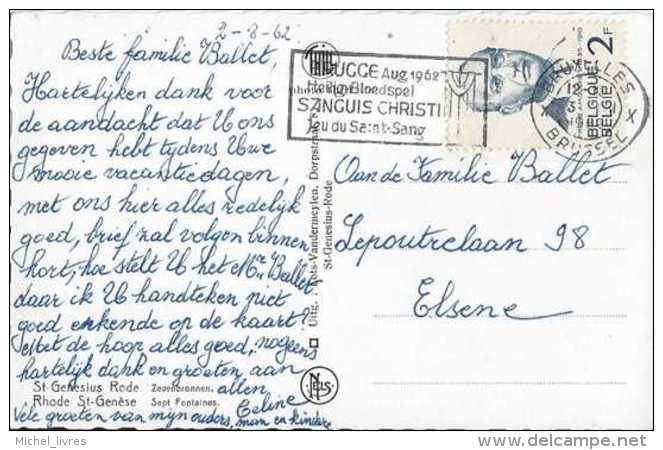 2-8-62
Beste familie Ballet,
Hartelijken dank voor
de aandacht dat U ons
gegeven hebt tydens Uwe
mooie vacantiedagen,
met ons hier alles redelijk
goed, brief zal volgen binnen
kort, hoe stelt U het Mr Ballet
daar ik U handteken niet
goed erkende op de kaart?
Met de hoop alles goed, nogeens
hartelijk dank en groeten aan
allen
Vele groeten van mijn ouders, Celine
mem en kinders
St-Genesius Rode Zevenbronnen.
Rhode St-Genèse Sept Fontaines.
Uitg. Vandermeylen, Dorpstraat
St-Genesius-Rode
NELS
BRUGGE Aug. 1962
Heilig Bloedspel
SANGUIS CHRISTI
Jeu du Saint-Sang
BRUXELLES
12-
3
BRUSSEL
X X
2F
BELGIQUE
BELGIE
Aan de Familie Ballet
Lepoutrelaan 98
Elsene
Michel_livres
www.delcampe.net